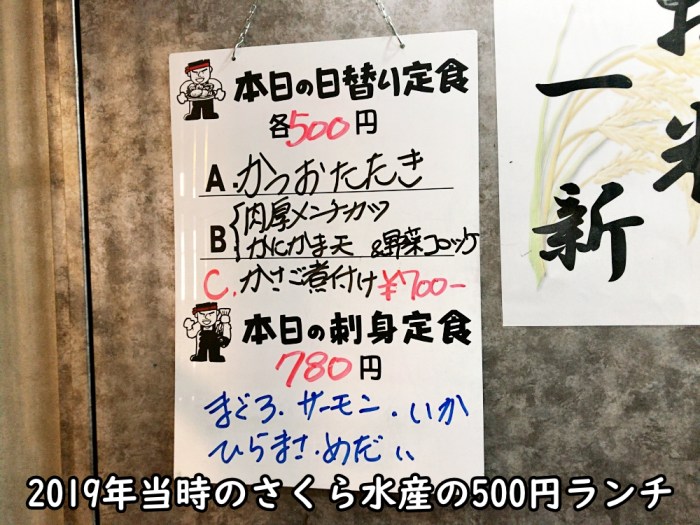 本日の日替り定食
各500円
A.かつおたたき
B 肉厚メンチカツ
かにかま天 &野菜コロッケ
C.かさご煮付け ¥700-
本日の刺身定食
780円
まぐろ.サーモン.いか
ひらまさ.めだい
一新
米
2019年当時のさくら水産の500円ランチ